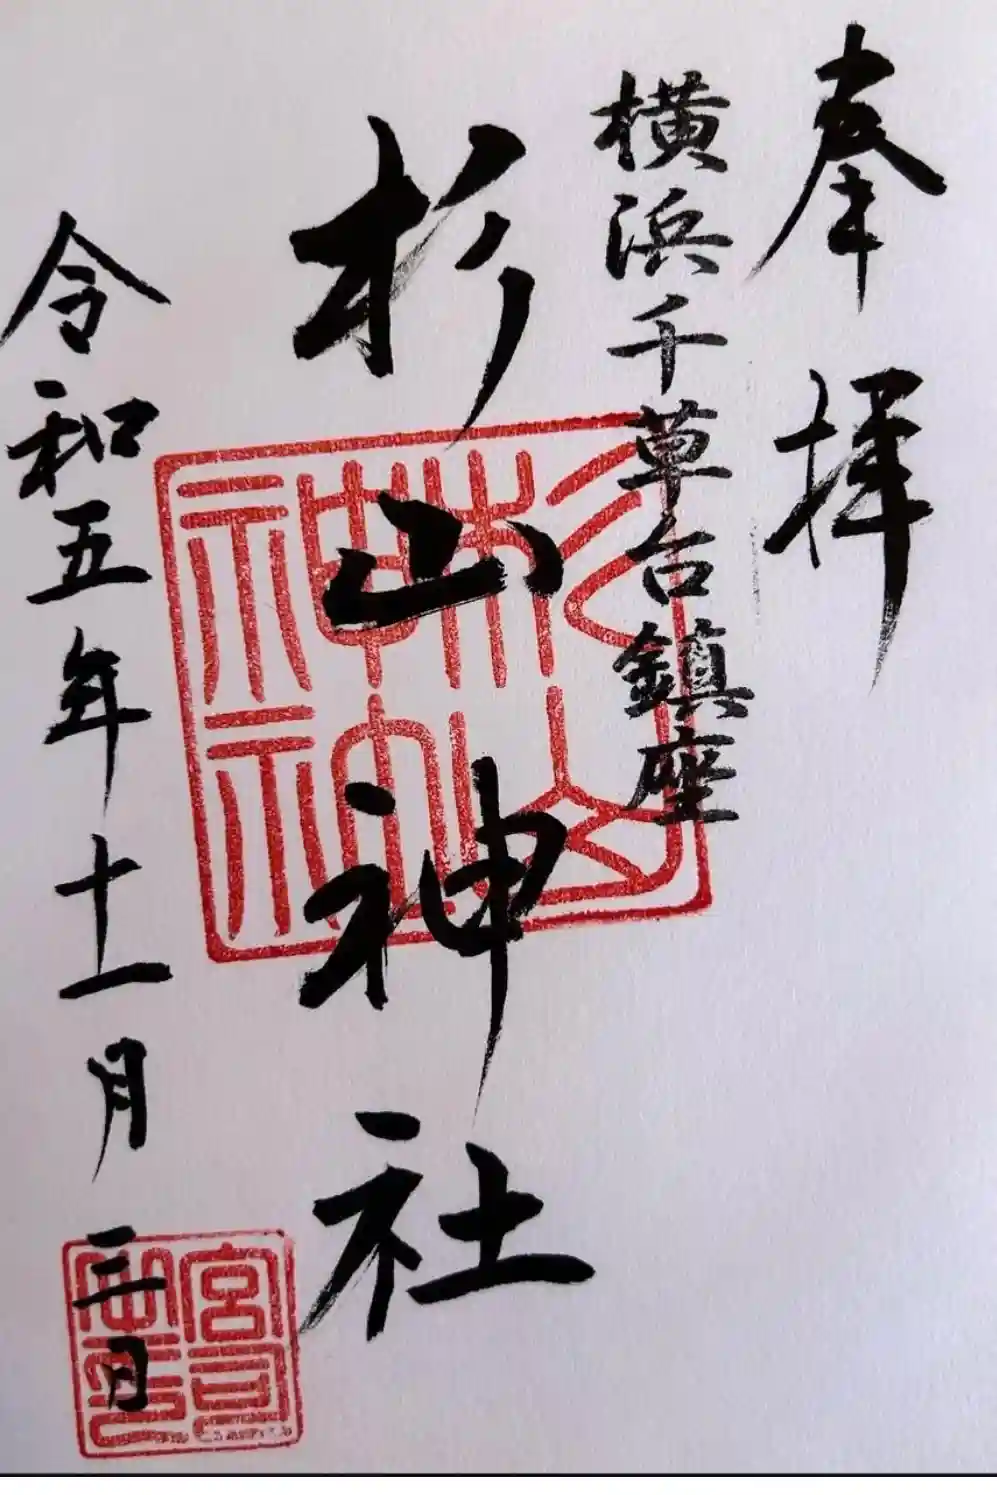 奉拝
横浜千草台鎮座
杉山神社
令和五年十一月三日
杉山神社
宮司之印